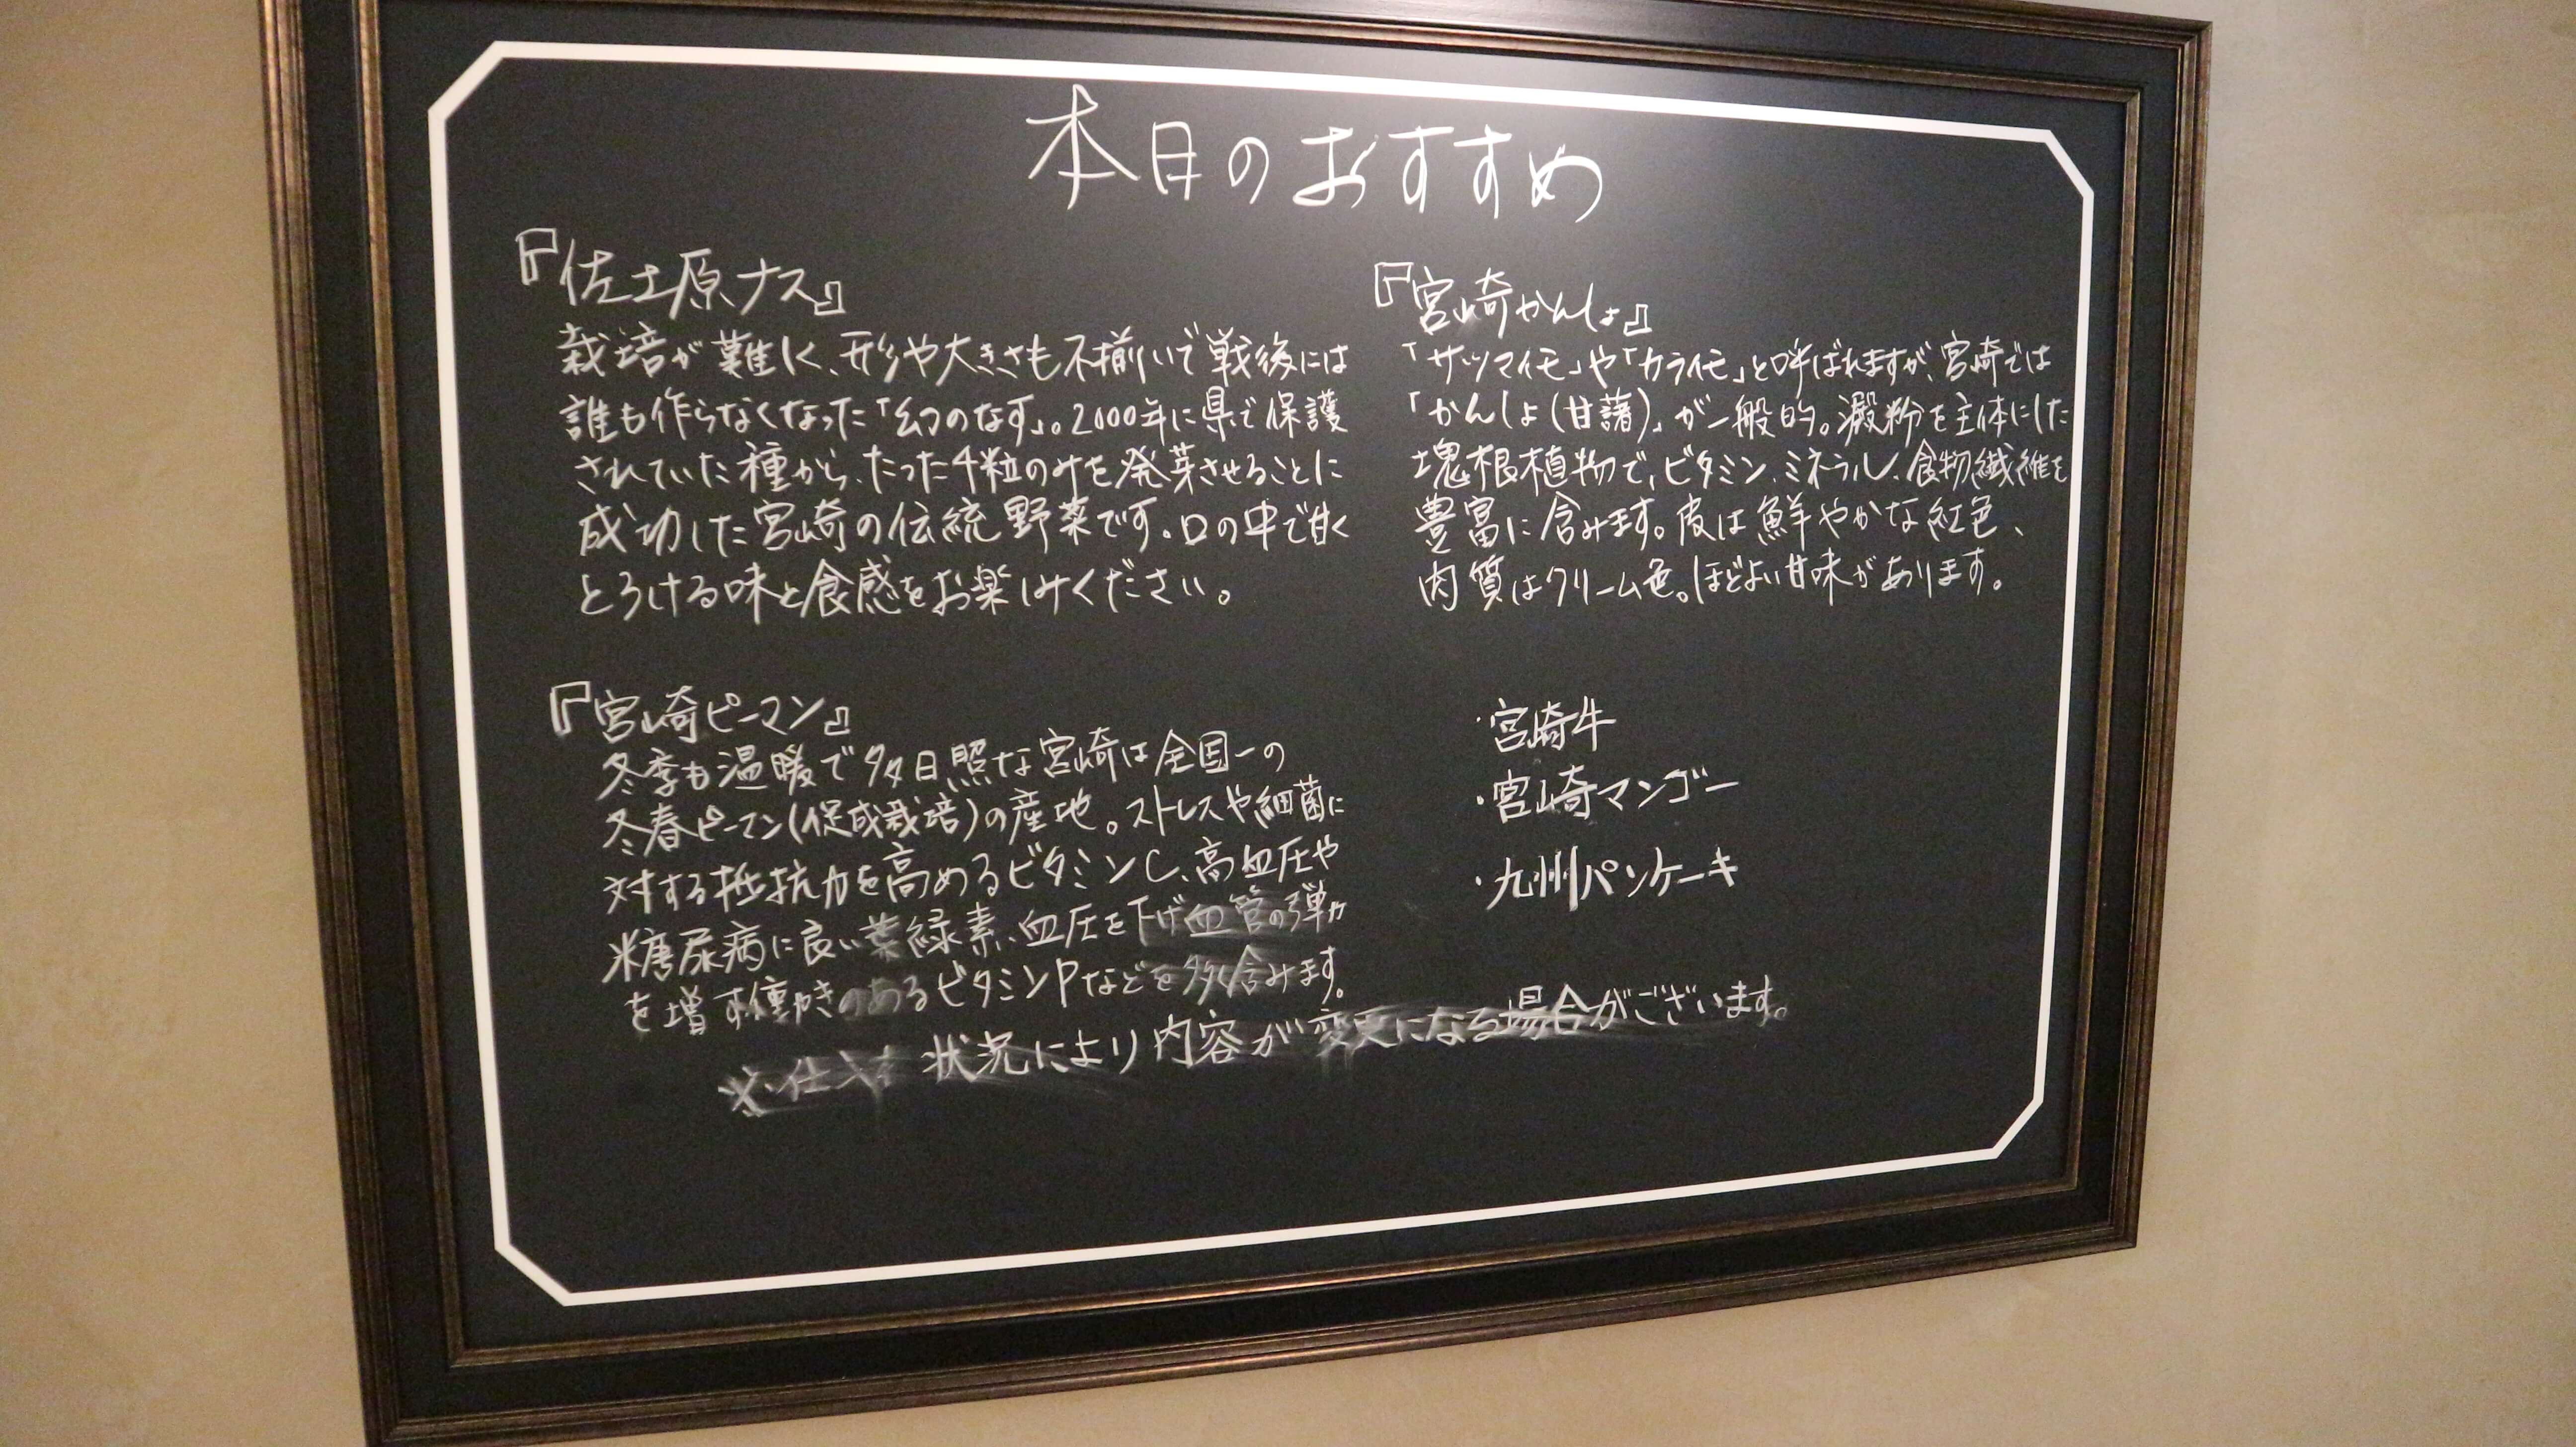 本日のおすすめ
『佐土原ナス』
栽培が難しく、形や大きさも不揃いで戦後には
誰も作らなくなった「幻のなす」。2000年に県で保護
されていた種から、たった4粒のみを発芽させることに
成功した宮崎の伝統野菜です。口の中で甘く
とろける味と食感をお楽しみください。
『宮崎かんしょ』
「サツマイモ」や「カライモ」と呼ばれますが、宮崎では
「かんしょ(甘藷)」が一般的。澱粉を主体にした
塊根植物で、ビタミン、ミネラル、食物繊維を
豊富に含みます。皮は鮮やかな紅色、
肉質はクリーム色。ほどよい甘味があります。
『宮崎ピーマン』
冬季も温暖で多日照な宮崎は全国一の
冬春ピーマン(促成栽培)の産地。ストレスや細菌に
対する抵抗力を高めるビタミンC、高血圧や
糖尿病に良い葉緑素、血圧を下げ血管の弾力
を増す働きのあるビタミンPなどを多く含みます。
・宮崎牛
・宮崎マンゴー
・九州パンケーキ
※仕入れ状況により内容が変更になる場合がございます。